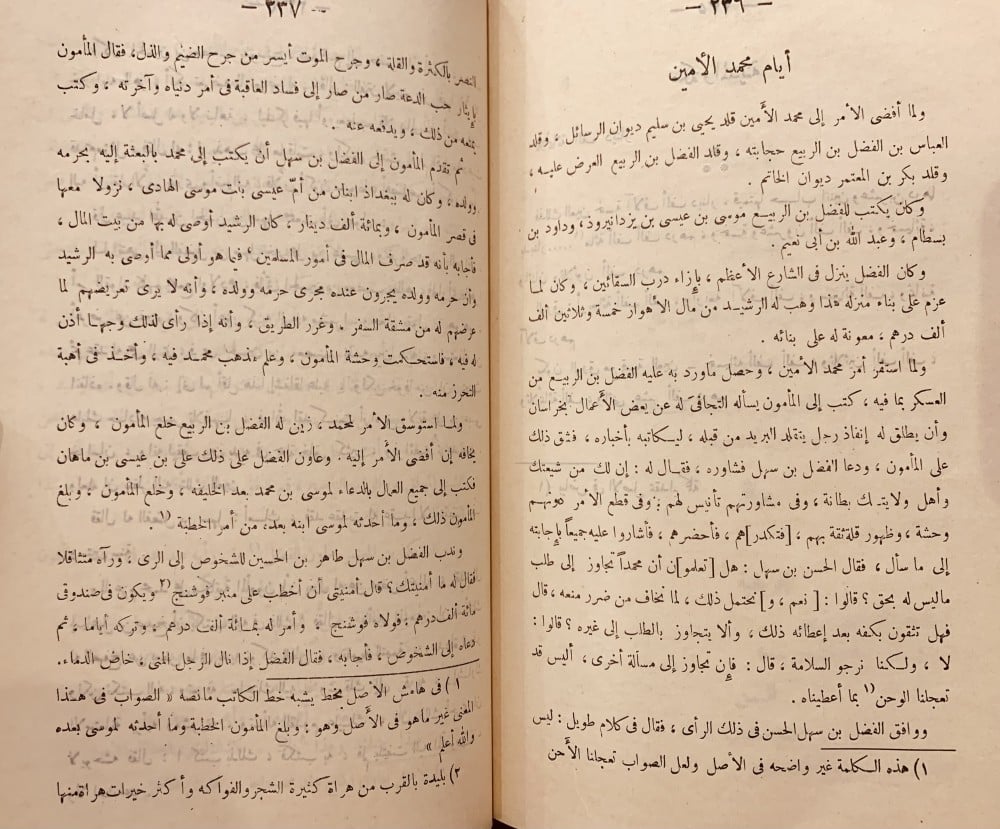 — ٢٣٦ —
أيام محمد الأمين
ولما أفضى الأمر إلى محمد الأمين قلد يحيى بن سليم ديوان الرسائل ، وقلد
العباس بن الفضل بن الربيع حجابته ، وقلد الفضل بن الربيع العرض عليه ،
وقلد بكر بن المعتمر ديوان الخاتم .
وكان يكتب للفضل بن الربيع موسى بن عيسى بن يزدانيروذ، وداود بن
بسطام ، وعبد الله بن أبى نعيم .
وكان الفضل ينزل فى الشارع الأعظم ، بإزاء درب السقائين ، وكان لما
عزم على بناء منزله هذا وهب له الرشيد من مال الأهواز خمسة وثلاثين ألف
ألف درهم ، معونة له على بنائه .
ولما استقر أمر محمد الأمين ، وحصل ماورد به عليه الفضل بن الربيع من
العسكر بما فيه ، كتب إلى المأمون يسأله التجافى له عن بعض الأعمال بخراسان
وأن يطلق له إنفاذ رجل يتقلد البريد من قبله ، ليكاتبه بأخباره ، فشق ذلك
على المأمون ، ودعا الفضل بن سهل فشاوره ، فقال له : إن لك من شيعتك
وأهل ولايتك بطانة ، وفى مشاورتهم تأنيس لهم ، وفى قطع الأمر دونهم
وحشة ، وظهور قلة ثقة بهم ، [فتكدر]هم ، فأحضرهم ، فأشاروا عليه جميعاً بإجابته
إلى ما سأل ، فقال الحسن بن سهل : هل [تعلمو]ن أن محمداً تجاوز إلى طلب
ماليس له بحق ؟ قالوا : [ نعم ، و] نحتمل ذلك ، لما نخاف من ضرر منعه ، قال
فهل تثقون بكفه بعد إعطائه ذلك ، وألا يتجاوز بالطلب إلى غيره ؟ قالوا :
لا ، ولكنا نرجو السلامة ، قال : فإن تجاوز إلى مسألة أخرى ، أليس قد
تعجلنا الوحن ١) بما أعطيناه .
ووافق الفضل بن سهل الحسن فى ذلك الرأى ، فقال فى كلام طويل : ليس
١) هذه الكلمة غير واضحه فى الأصل ولعل الصواب تعجلنا الأحن
— ٢٣٧ —
النصر بالكثرة والقلة ، وجرح الموت أيسر من جرح الضيم والذل، فقال المأمون
بإيثار حب الدعة صار من صار إلى فساد العاقبة فى أمر دنياه وآخرته ، وكتب
يمنعه من ذلك ، ويدفعه عنه .
ثم تقدم المأمون إلى الفضل بن سهل أن يكتب إلى محمد بالبعثة إليه بحرمه
وولده ، وكان له ببغداذ ابنان من أمّ عيسى بنت موسى الهادى ، نزولا معها
فى قصر المأمون ، وبمائة ألف دينار ، كان الرشيد أوصى له بها من بيت المال ،
فأجابه بأنه قد صرف المال فى أمور المسلمين ، فيما هو أولى مما أوصى به الرشيد
وأن حرمه وولده يجرون عنده مجرى حرمه وولده ، وأنه لا يرى تعريضهم لما
عرضهم له من مشقة السفر ، وغرر الطريق ، وأنه إذا رأى لذلك وجها أذن
له فيه ، فاستحكمت وحشة المأمون ، وعلم مذهب محمد فيه ، وأخذ فى أهبة
التحرز منه .
ولما استوسق الأمر لمحمد ، زين له الفضل بن الربيع خلع المأمون ، وكان
يخافه إن أفضى الأمر إليه . وعاون الفضل على ذلك على بن عيسى بن ماهان
فكتب إلى جميع العمال بالدعاء لموسى بن محمد بعد الخليفه ، وخلع المأمون ، وبلغ
المأمون ذلك ، وما أحدثه لموسى ابنه بعده من أمر الخطبة ١)
وندب الفضل بن سهل طاهر بن الحسين للشخوص إلى الرى ، ورآه متثاقلا
فقال له ما أمنيتك؟ قال أمنيتى أن أخطب على منبر فوشنج ٢) ويكون فى صندوقى
مائة ألف درهم ، فولاه فوشنج ، وأمر له بمائة ألف درهم ، وتركه أياما ، ثم
دعاه إلى الشخوص ، فأجابه ، فقال الفضل إذا نال الرجل المنى ، خاض الدماء.
١) فى هامش الأصل بخط يشبه خط الكاتب مانصه « الصواب فى هذا
المعنى غير ماهو فى الأصل وهو : وبلغ المأمون الخطبة وما أحدثه لموسى بعده
والله أعلم »
٢) بليدة بالقرب من هراة كثيرة الشجر والفواكه وأكثر خيرات هراة منها